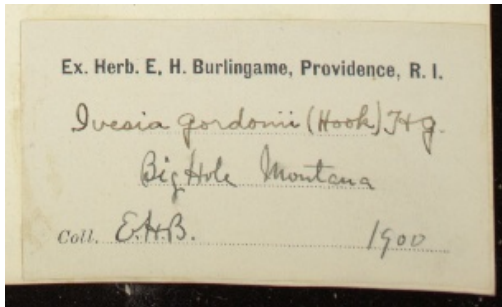 Ex. Herb. E. H. Burlingame, Providence, R. I.
Ivesia gordonii (Hook) T & G.
Big Hole Montana
Coll. E.H.B. 1900